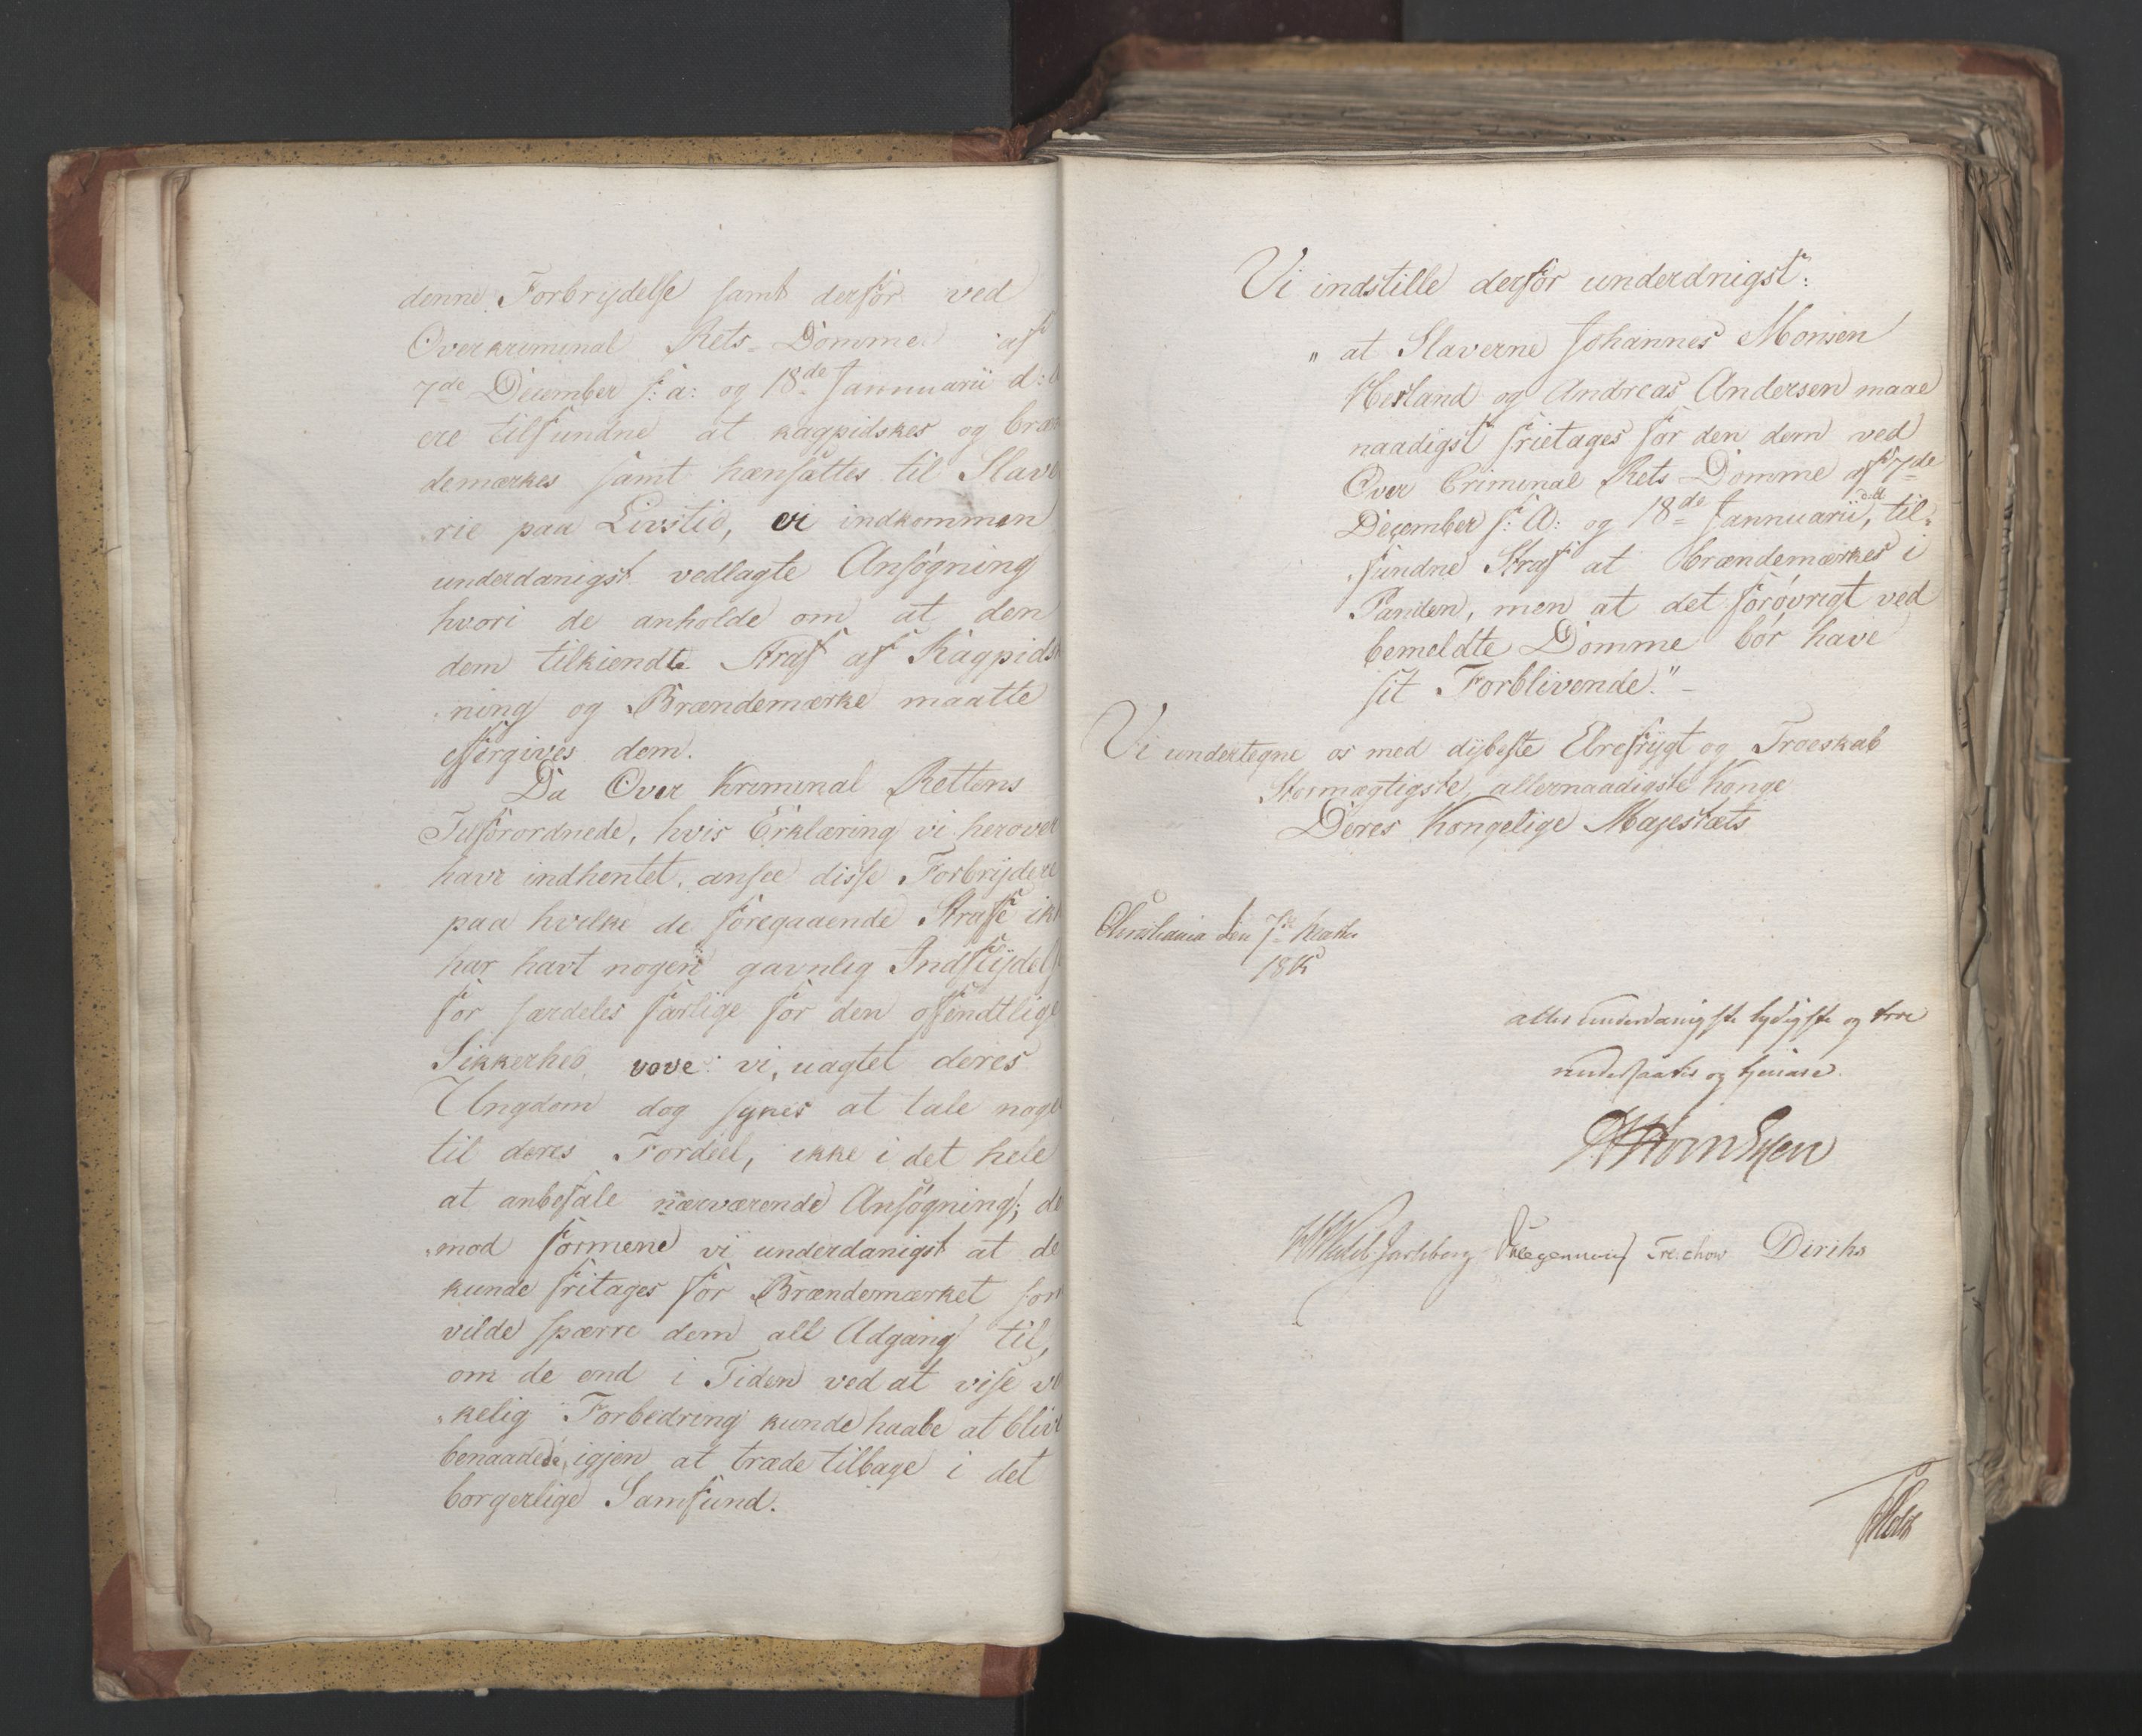 denne Forbrydelse samt derfor ved
Overkriminal Rets-Domme af
7de December f: a: og 18de Jannuarii d:
ere tilfundne at kagpidskes og bræn
demærkes samt hensættes til Slave
rie paa Livstid, er indkommen
underdanigst vedlagte Ansøgning
hvori de anholde om at den
dem tilkiendte Straf af Kagpidsk
ning og Brændemærke maatte
eftergives dem.
Da Over Kriminal Rettens
Tilforordnede, hvis Erklæring vi herover
have indhentet, ansee disse Forbrydere
paa hvilke de foregaaende Straffe ikk
har havt nogen gavnlig Indflydelse
for særdeles farlige for den offendtlige
Sikkerhed, vove vi, uagtet deres
Ungdom dog synes at tale noge
til deres Fordeel, ikke i det hele
at anbefale nærværende Ansøgning; de
mod formene vi underdanigst at de
kunde fritages for Brændemærket som
vilde spærre dem all Adgang til,
om de end i Tiden ved at vise vi
kelig Forbedring kunde haabe at blive
benaadede, igjen at træde tilbage i det
borgerlige Samfund.
Vi indstille derfor underdnigst:
" at Slaverne Johannes Monsen
Hesland og Andreas Andersen maae
naadigst frietages for den dem ved
Over Criminal Rets Domme af 7de
December f: A: og 18de Jannuarii, d: A til-
fundne Straf at brændemærkes i
Panden, men at det forøvrigt ved
bemeldte Domme bør have
sit Forblivende." –
Vi undertegne os med dybeste Ehrefrygt og Troeskab
Stormægtigste, allernaadigste Konge
Deres Kongelige Majestæts
Christiania den 7de Marts
1815
allerunderdanigste lydigste og troe
undersaatter og tjenere.
M Sommerhjelm
HWedel-Jarlsberg Hegermann Treschow Diriks
Holst